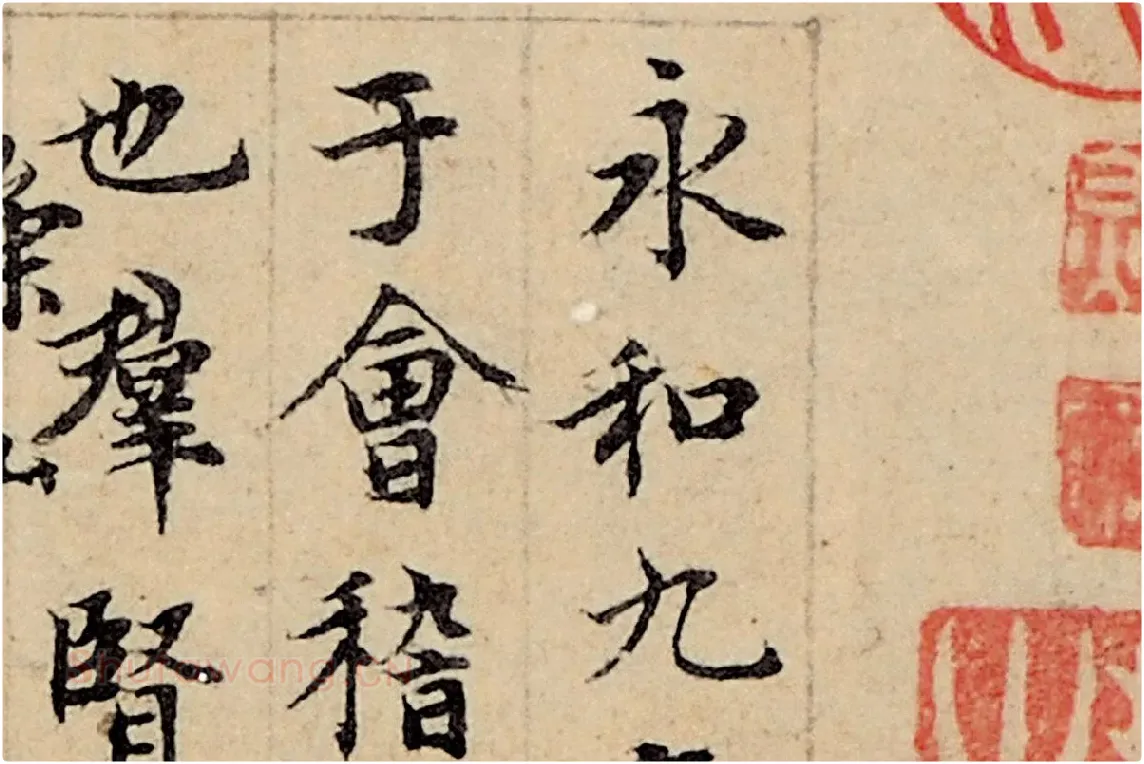 永和九
于會稽
也羣賢
shufawang.cn